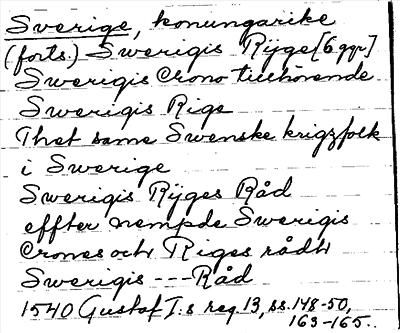 Sverige, konungarike
(forts.) Swerigis Rijge [6 ggr]
Swerigis Crono tillhörende
Swerigis Rige
Thet same Swenske krigzfolk
i Swerige
Swerigis Rijges Råd
effter nempde Swerigis
Crones och Riges rådh
Swerigis --- Råd
1540 Gustaf I:s reg. 13, ss. 148-50,
163-165.